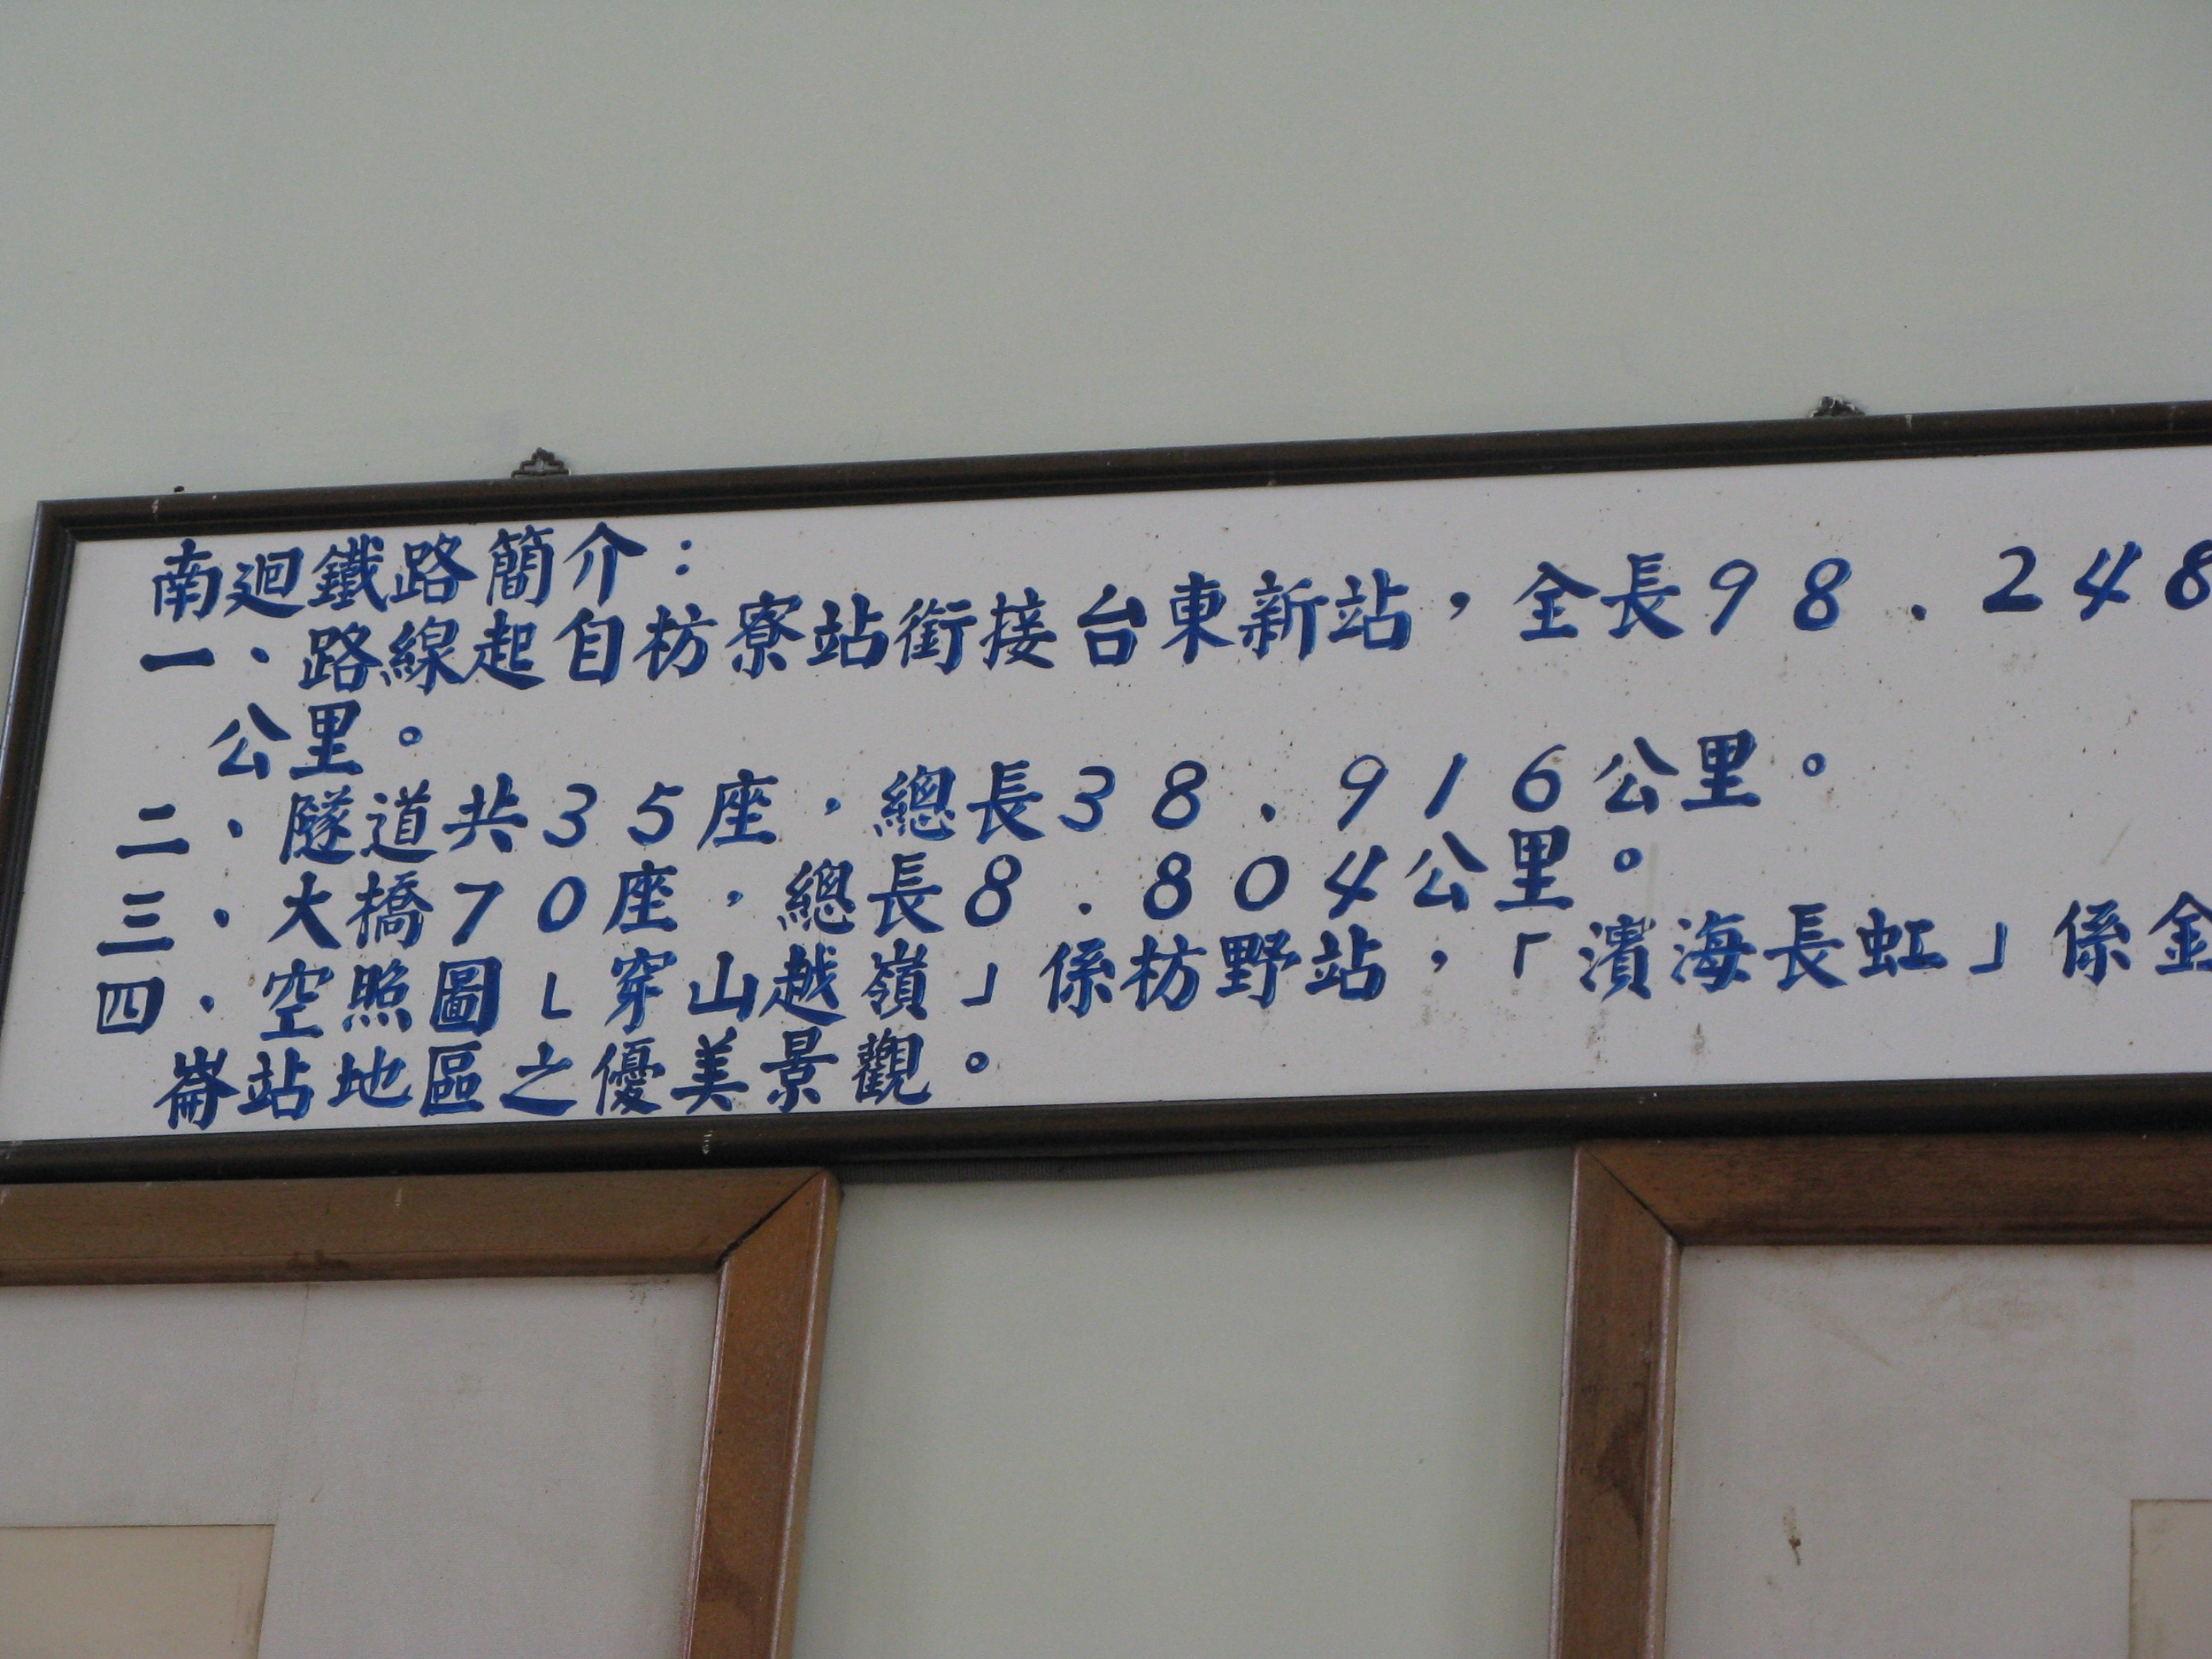 南迴鐵路簡介：
一、路線起自枋寮站銜接台東新站，全長98.248
公里。
二、隧道共35座，總長38.916公里。
三、大橋70座，總長8.804公里。
四、空照圖「穿山越嶺」係枋野站，「濱海長虹」係金
崙站地區之優美景觀。